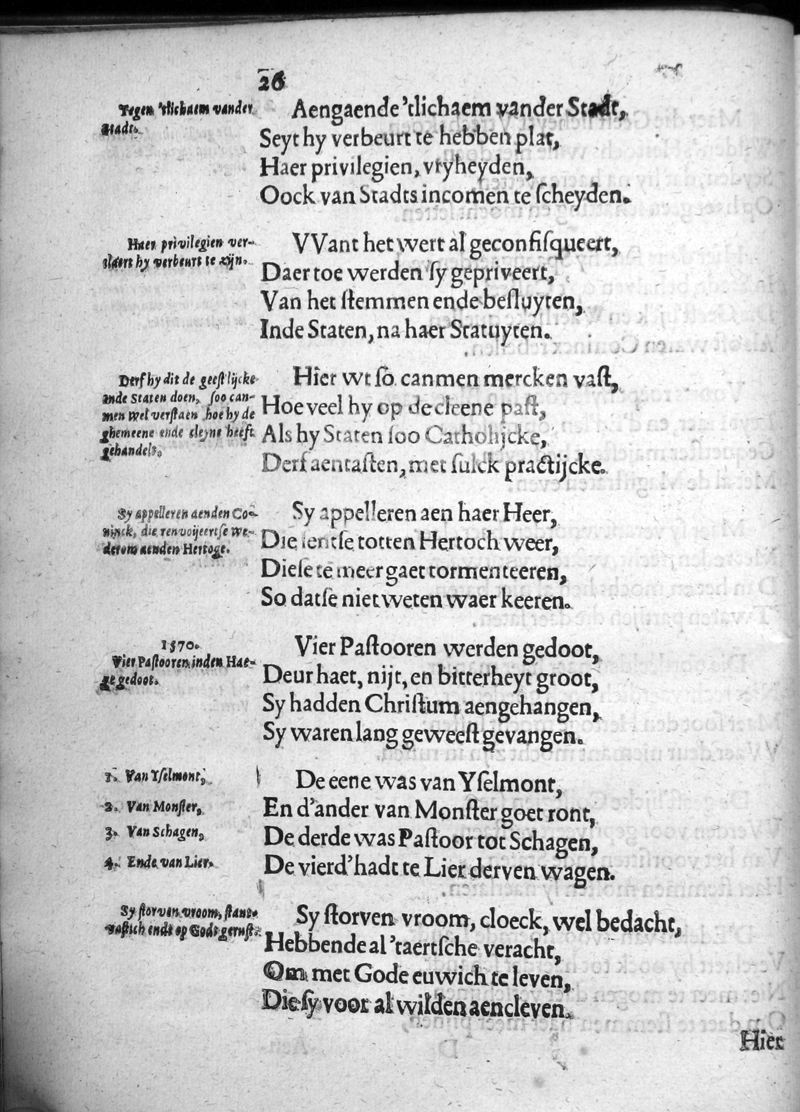 26
Tegen 'tlichaem vander
stadt.
Aengaende 'tlichaem vander Stadt,
Seyt hy verbeurt te hebben plat,
Haer privilegien, vryheyden,
Oock van Stadts incomen te scheyden.
Haer privilegien ver-
slaert hy verbeurt te zijn.
VVant het wert al geconfisqueert,
Daer toe werden sy gepriveert,
Van het stemmen ende besluyten,
Inde Staten, na haer Statuyten.
Derf hy dit de geestlijcke
ende Staten doen, soo can-
men wel verstaen hoe hy de
ghemeene ende cleyne heeft
gehandelt.
Hier wt so canmen mercken vast,
Hoe veel hy op de cleene past,
Als hy Staten soo Catholijcke,
Derf aentasten, met sulck practijcke.
Sy appelleren aenden Co-
ninck, die renvoijeertse we-
derom aenden Hertoge.
Sy appelleren aen haer Heer,
Die sentse totten Hertoch weer,
Diese te meer gaet tormenteeren,
So datse niet weten waer keeren.
1570.
Vier Pastooren inden Hae-
ge gedoot.
Vier Pastooren werden gedoot,
Deur haet, nijt, en bitterheyt groot,
Sy hadden Christum aengehangen,
Sy waren lang geweest gevangen.
1. Van Yselmont,
2. Van Monster,
3. Van Schagen,
4. Ende van Lier.
De eene was van Yselmont,
En d'ander van Monster goet ront,
De derde was Pastoor tot Schagen,
De vierd' hadt te Lier derven wagen.
Sy storven vroom, stant-
vastich ende op Godt gerust.
Sy storven vroom, cloeck, wel bedacht,
Hebbende al 'taertsche veracht,
Om met Gode euwich te leven,
Die sy voor al wilden aencleven.
Hier